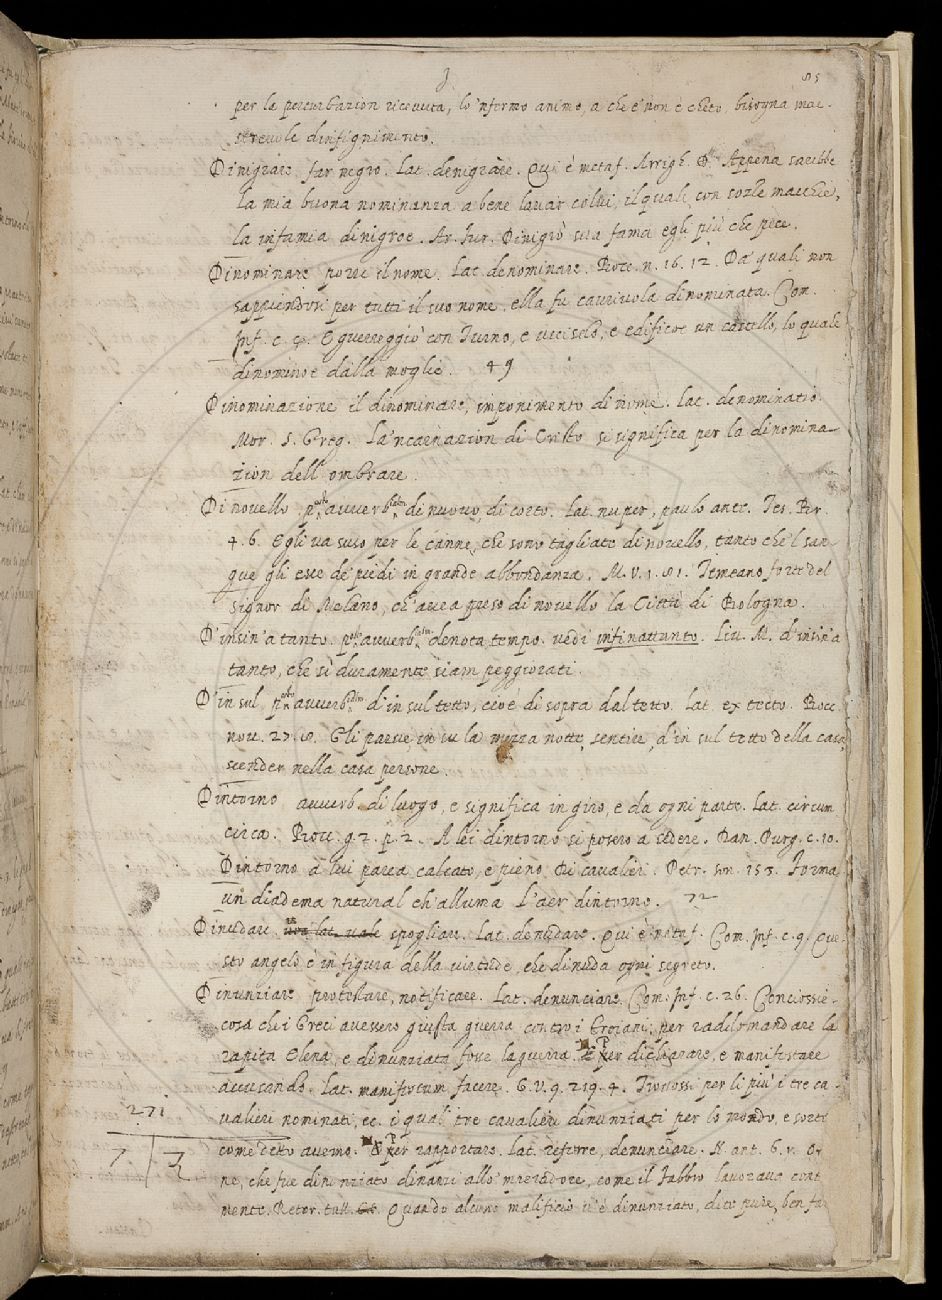 J 85
per la perturbazion ricevuta, lo 'nfermo animo, a che e' non è cheto, bisogna mae-
strevole dinfignimento.
Dinigrare far negro. Lat. denigrare. Qui è metaf. Arrigh. Appena sarebbe
la mia buona nominanza a bene lavar colui, il quale con sozze macchie,
la infamia dinigroe. Ar. fur. Dinigrò sua fama egli più che pece.
Dinominare porre il nome. Lat. denominare. Bocc. n. 16. 12. Da quali non
sappiendosi per tutti il suo nome, ella fu cavriuola dinominata. Com.
Inf. c. E guerreggiò con Turno, e vinselo, e edificoe un castello, lo quale
dinominoe dalla moglie. 49
Dinominazione il dinominare, imponimento di nome. Lat. denominatio.
Mor. S. Greg. La 'ncarnazion di Cristo si significa per la dinomina-
zion dell' ombrare.
Di novello posto avverb. di nuovo, di corto. Lat. nuper, paulo ante. Tes. Br.
4. 6. Egli va suso per le canne, che sono tagliate di novello, tanto che 'l san-
gue gli esce de' piedi in grande abbondanza. M. V. 1. 81. Temeano forte del
signor di Melano, ch' avea preso di novello la Città di Bologna.
D' insin' a tanto. posto avverb. denota tempo. vedi infinattanto. Liv. M. d' insin' a
tanto, che sì duramente siam peggiorati.
D' in sul posto avverb. d' in sul tetto, cioè di sopra dal tetto. Lat. ex tecto. Bocc.
nov. 27. Gli parve in su la mezza notte sentire, d' in sul tetto della casa
scender nella casa persone.
Dintorno avverb. di luogo, e significa in giro, e da ogni parte. Lat. circum
circa. Bocc. 92. p. 2. A lei dintorno si posero a sedere. Dan. Purg. c. 10.
Dintorno a lui parea calcato, e pieno, Di cavalieri. Petr. son. 153. Forma
un diadema natural ch' alluma L' aer dintorno. 72
Dinudare spogliare. Lat. denudare. Qui è metaf. Com. Inf. c. 9. Que-
sto angelo è in figura della virtude, che dinuda ogni segreto.
Dinunziare protestare, notificare. Lat. denunciare. Com. Inf. c. 26. Conciossie-
cosa che i Greci avessero giusta guerra contro i Troiani, per radilomandare la
rapita Elena, e dinunziata fosse la guerra. Per dichiarare, e manifestare
accusando. Lat. manifestum facere. G. V. 9. 219. 4. Trovossi per li più i tre ca-
271
valieri nominati, ec. i quali tre cavalieri dinunziati per lo mondo, e sorti
7 3
come detto avemo. Per rapportare. Lat. referre, denunciare. N. ant. 6. v. O-
ne, che fue dinunziato dinanzi allo mperadore, come il fabbro lavorava cont
mente. Retor. tull. Quando alcuno malificio n' è dinunziato, dico pure, ben fa